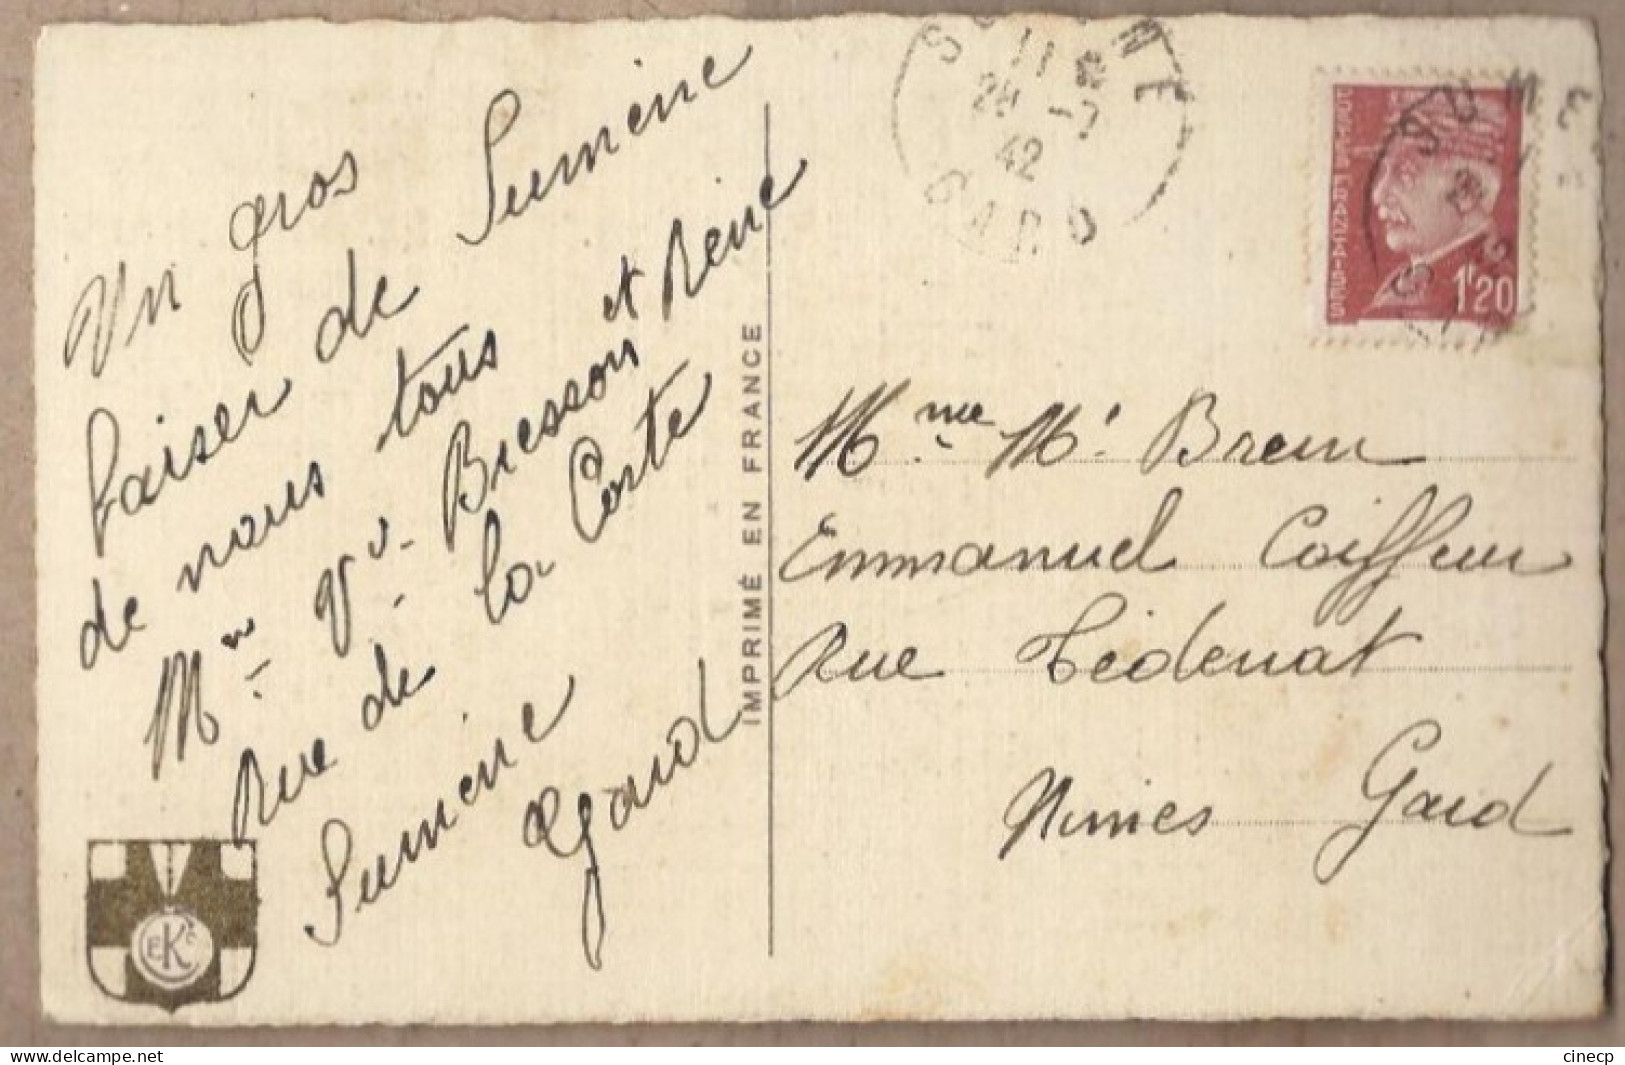 Un gros
baiser de Sumène
de nous tous
Mme Vve Bresson et René
Rue de la Corte
Sumène
Gard
IMPRIMÉ EN FRANCE
CEKC
SUMENE
11 H
28 -7
42
GARD
POSTES FRANÇAISES
1f20
Mme Mr Brem
Emmanuel Coiffeur
Rue Tédenat
Nimes Gard
cinecp
https://www.delcampe.net